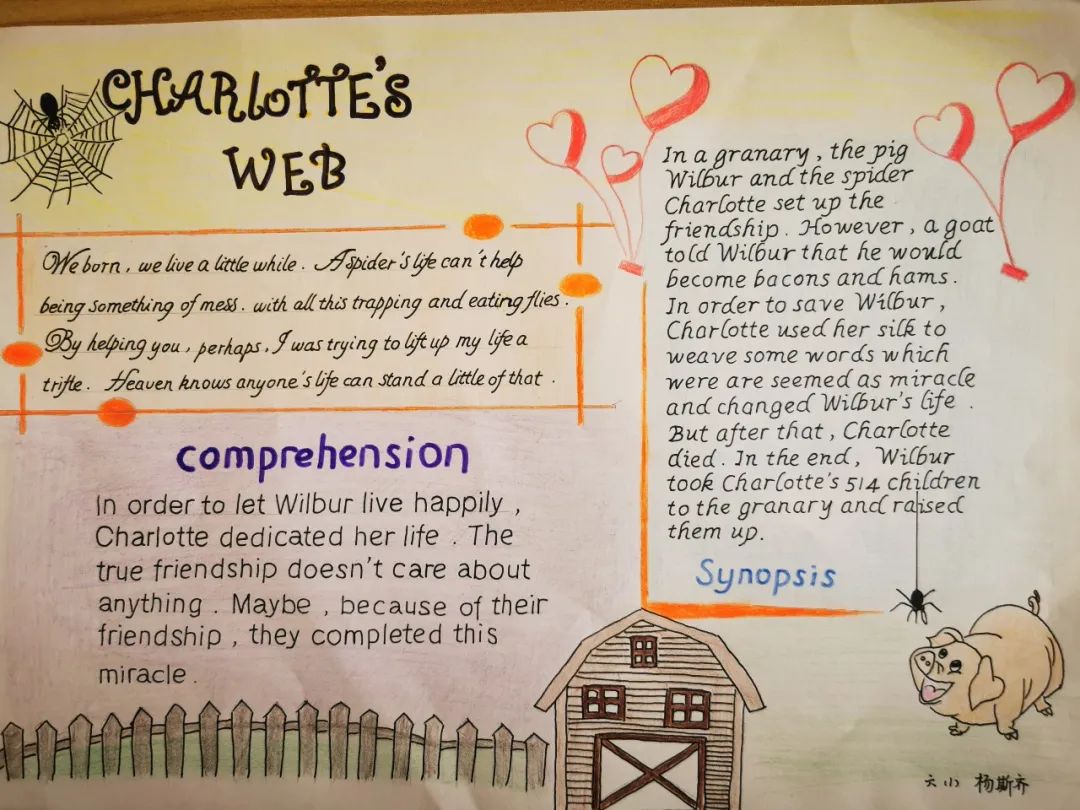 CHARLOTTE'S
WEB
We born, we live a little while. A spider's life can't help
being something of mess. with all this trapping and eating flies.
By helping you, perhaps, I was trying to lift up my life a
trifle. Heaven knows anyone's life can stand a little of that.
comprehension
In order to let Wilbur live happily,
Charlotte dedicated her life. The
true friendship doesn't care about
anything. Maybe, because of their
friendship, they completed this
miracle.
In a granary, the pig
Wilbur and the spider
Charlotte set up the
friendship. However, a goat
told Wilbur that he would
become bacons and hams.
In order to save Wilbur,
Charlotte used her silk to
weave some words which
were are seemed as miracle
and changed Wilbur's life.
But after that, Charlotte
died. In the end, Wilbur
took Charlotte's 514 children
to the granary and raised
them up.
Synopsis
六小 杨斯齐